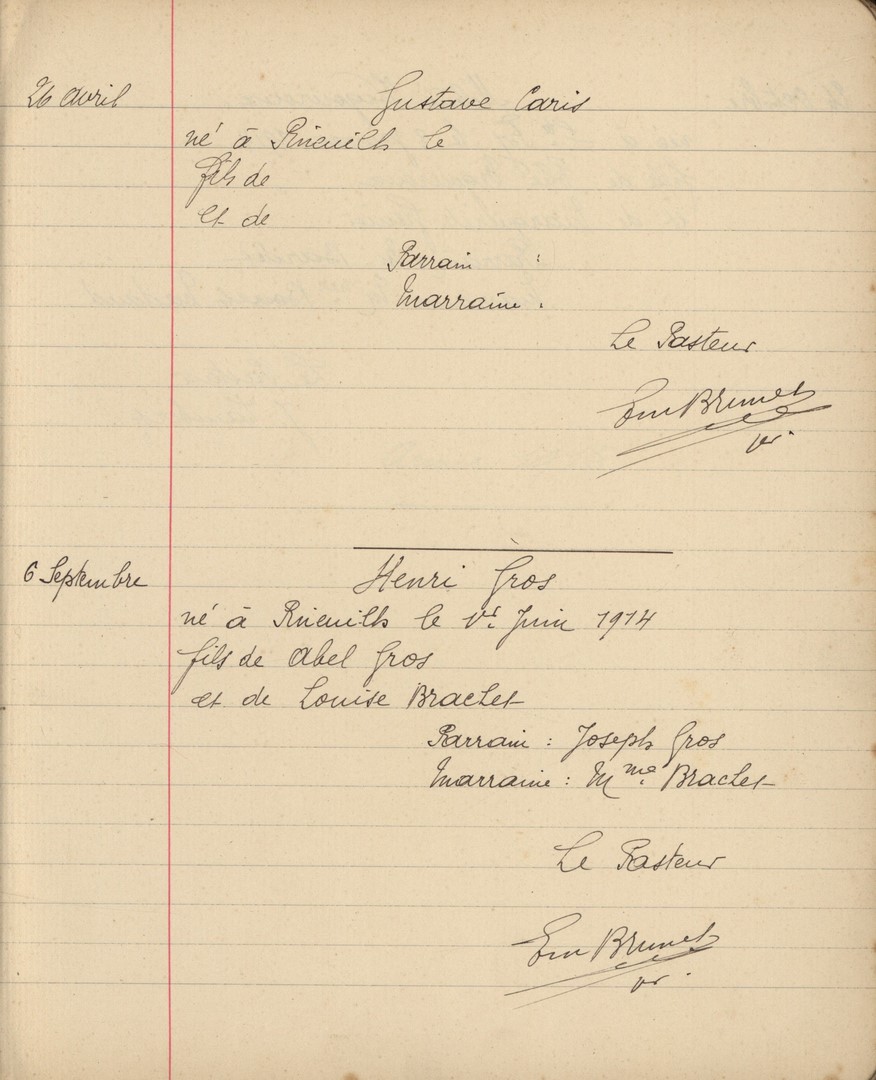 26 Avril
Gustave Caris
né à Rieucilh le
fils de
et de
Parrain :
Marraine :
Le Pasteur
Em Brunet
pr.
6 Septembre
Henri Gros
né à Rieucilh le 1er Juin 1914
fils de Abel Gros
et de Louise Brachet
Parrain : Joseph Gros
Marraine : Mme Brachet
Le Pasteur
Em Brunet
pr.